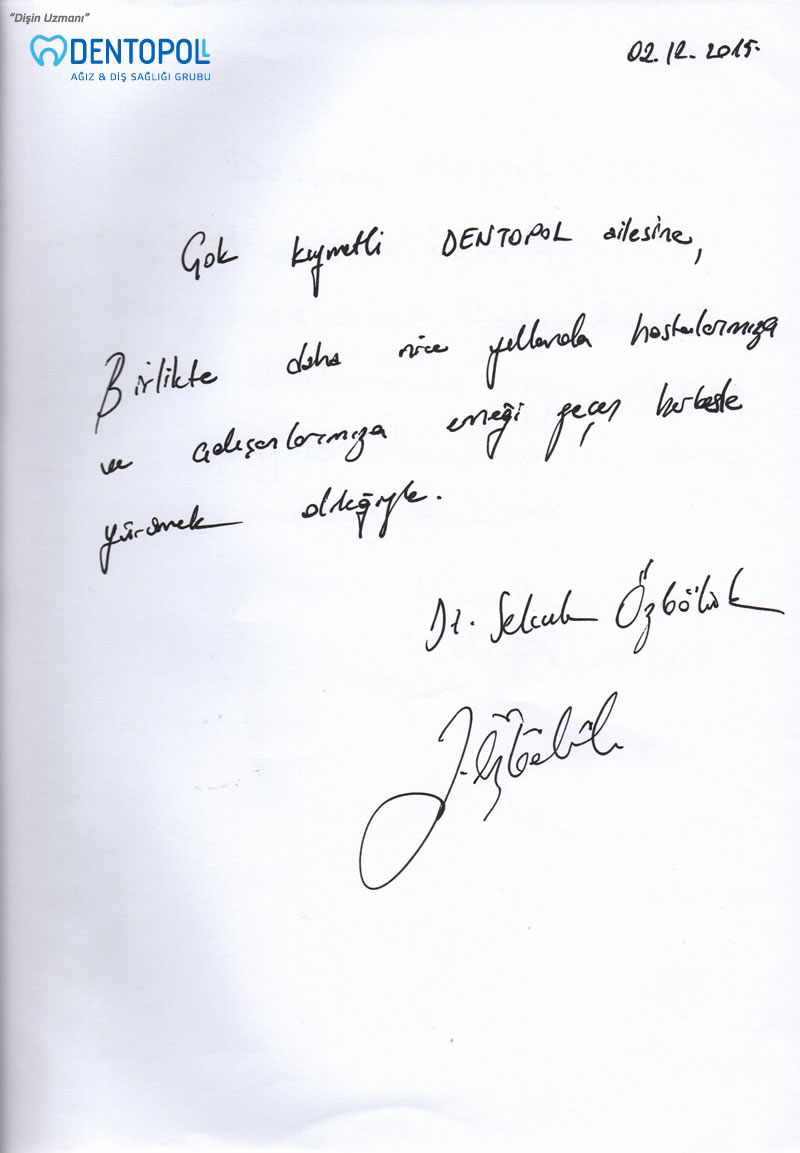 "Dişin Uzmanı"
DENTOPOLL
AĞIZ & DİŞ SAĞLIĞI GRUBU
02.12.2015.
Çok kıymetli DENTOPOL ailesine,
Birlikte daha nice yıllarda hastalarımıza
ve çalışanlarımıza emeği geçen herkesle
yürümek dileğiyle.
Dt. Selcuk Özbölük